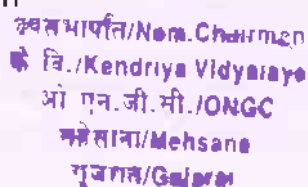 /Nom.Chairman
के वि./Kendriya Vidyalaya
ओ एन.जी.सी./ONGC
महेसाना/Mehsana
गुजरात/Gujarat